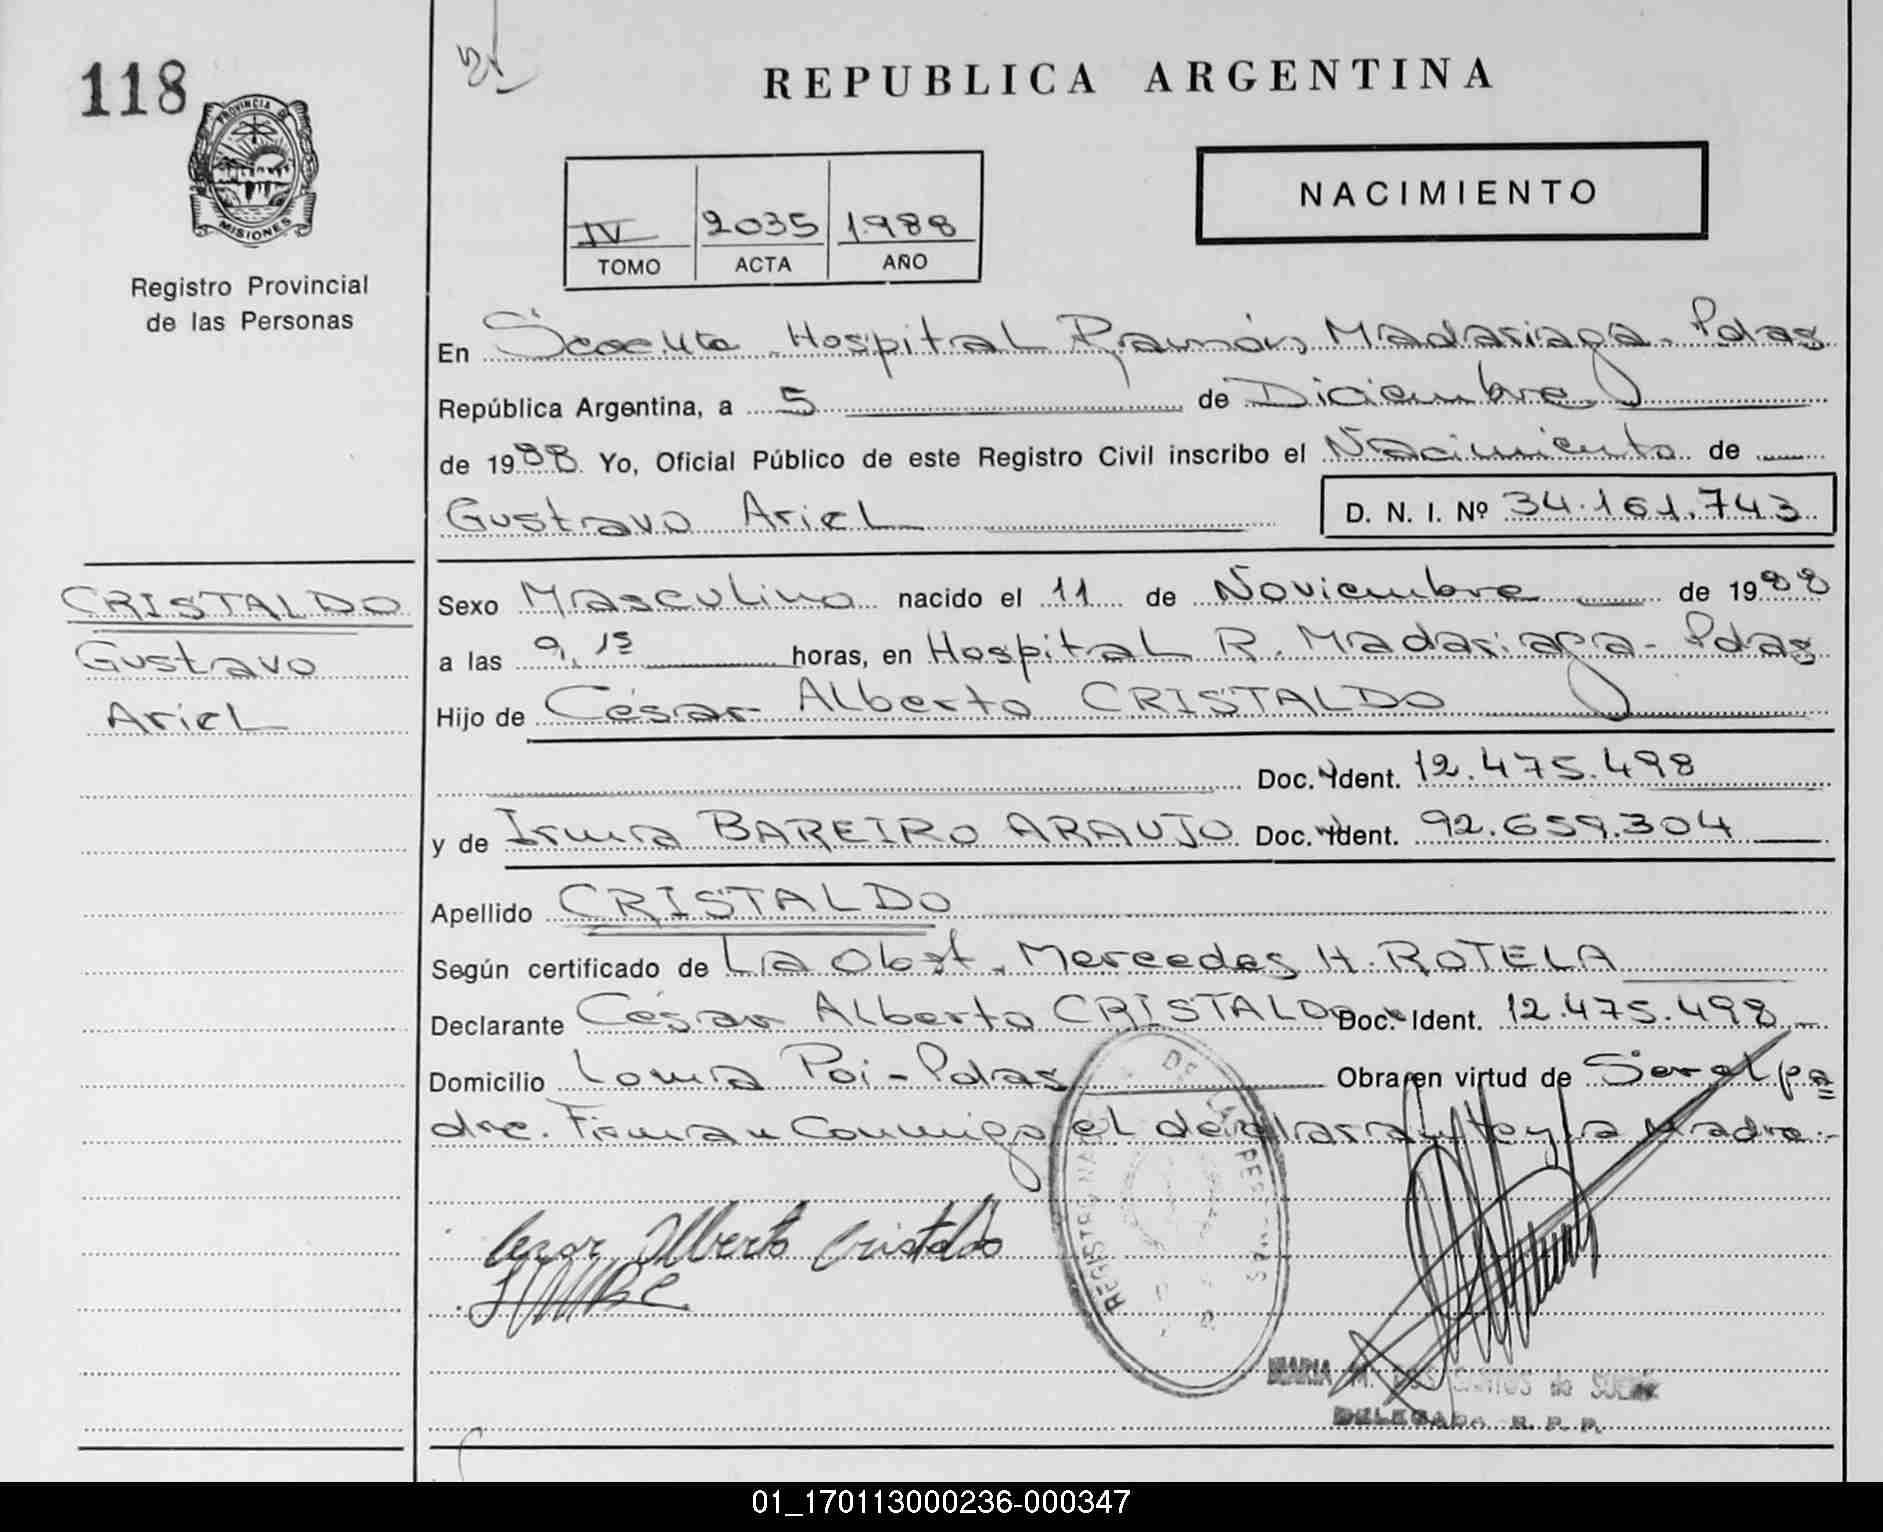 118
REPUBLICA ARGENTINA
PROVINCIA DE
MISIONES
Registro Provincial
de las Personas
NACIMIENTO
IV 2035 1988
TOMO ACTA AÑO
En Hospital Ramón Madariaga. Pdas
República Argentina, a 5 de Diciembre
de 1988 Yo, Oficial Público de este Registro Civil inscribo el Nacimiento de
Gustavo Ariel D. N. I. Nº 34.161.743
CRISTALDO
Gustavo
Ariel
Sexo Masculino nacido el 11 de Noviembre de 1988
a las 9,15 horas, en Hospital R. Madariaga - Pdas
Hijo de César Alberto CRISTALDO
Doc. Ident. 12.475.498
y de Irma BAREIRO ARAUJO Doc. Ident. 92.659.304
Apellido CRISTALDO
Según certificado de La Obst. Mercedes H. ROTELA
Declarante César Alberto CRISTALDO Doc. Ident. 12.475.498
Domicilio Loma Poi - Pdas Obra en virtud de Ser el pa
dre. Firman Conmigo el declarante y la Madre.-
Cesar Alberto Cristaldo
REGISTRO DE LAS PERSONAS
MARIA M. DOS SANTOS de
DELEGADA R. P. P.
01_170113000236-000347